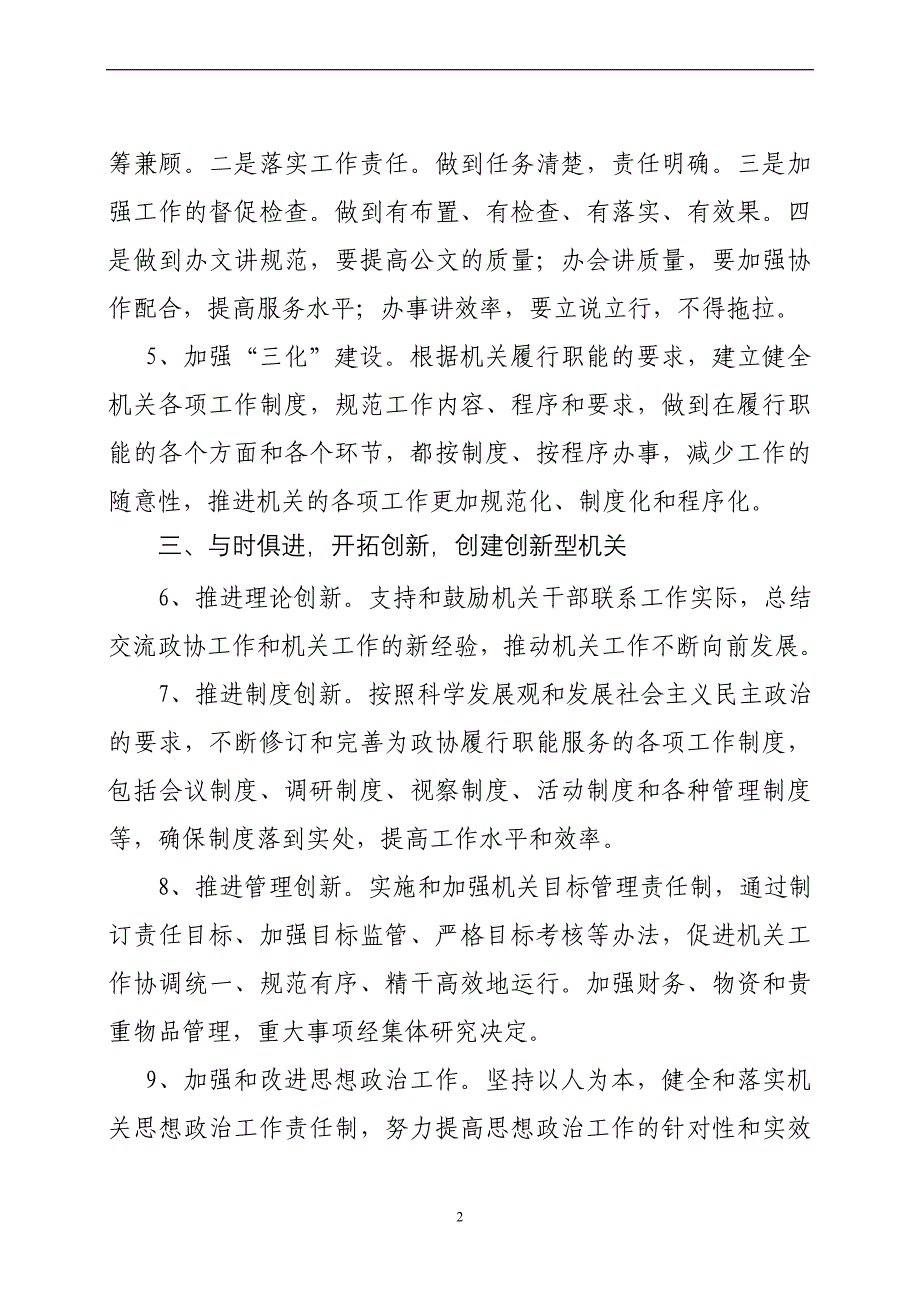 筹兼顾。二是落实工作责任。做到任务清楚，责任明确。三是加
强工作的督促检查。做到有布置、有检查、有落实、有效果。四
是做到办文讲规范，要提高公文的质量；办会讲质量，要加强协
作配合，提高服务水平；办事讲效率，要立说立行，不得拖拉。
5、加强“三化”建设。根据机关履行职能的要求，建立健全
机关各项工作制度，规范工作内容、程序和要求，做到在履行职
能的各个方面和各个环节，都按制度、按程序办事，减少工作的
随意性，推进机关的各项工作更加规范化、制度化和程序化。
三、与时俱进，开拓创新，创建创新型机关
6、推进理论创新。支持和鼓励机关干部联系工作实际，总结
交流政协工作和机关工作的新经验，推动机关工作不断向前发展。
7、推进制度创新。按照科学发展观和发展社会主义民主政治
的要求，不断修订和完善为政协履行职能服务的各项工作制度，
包括会议制度、调研制度、视察制度、活动制度和各种管理制度
等，确保制度落到实处，提高工作水平和效率。
8、推进管理创新。实施和加强机关目标管理责任制，通过制
订责任目标、加强目标监管、严格目标考核等办法，促进机关工
作协调统一、规范有序、精干高效地运行。加强财务、物资和贵
重物品管理，重大事项经集体研究决定。
9、加强和改进思想政治工作。坚持以人为本，健全和落实机
关思想政治工作责任制，努力提高思想政治工作的针对性和实效
2